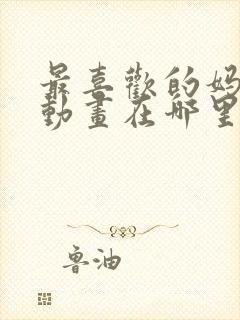 最喜歡的媽
動畫在哪里
魯油